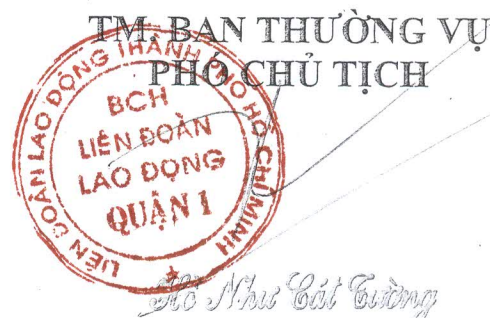 TM. BAN THƯỜNG VỤ
PHÓ CHỦ TỊCH
LIÊN ĐOÀN LAO ĐỘNG THÀNH PHỐ HỒ CHÍ MINH
BCH
LIÊN ĐOÀN
LAO ĐỘNG
QUẬN 1
Hồ Như Cát Tường